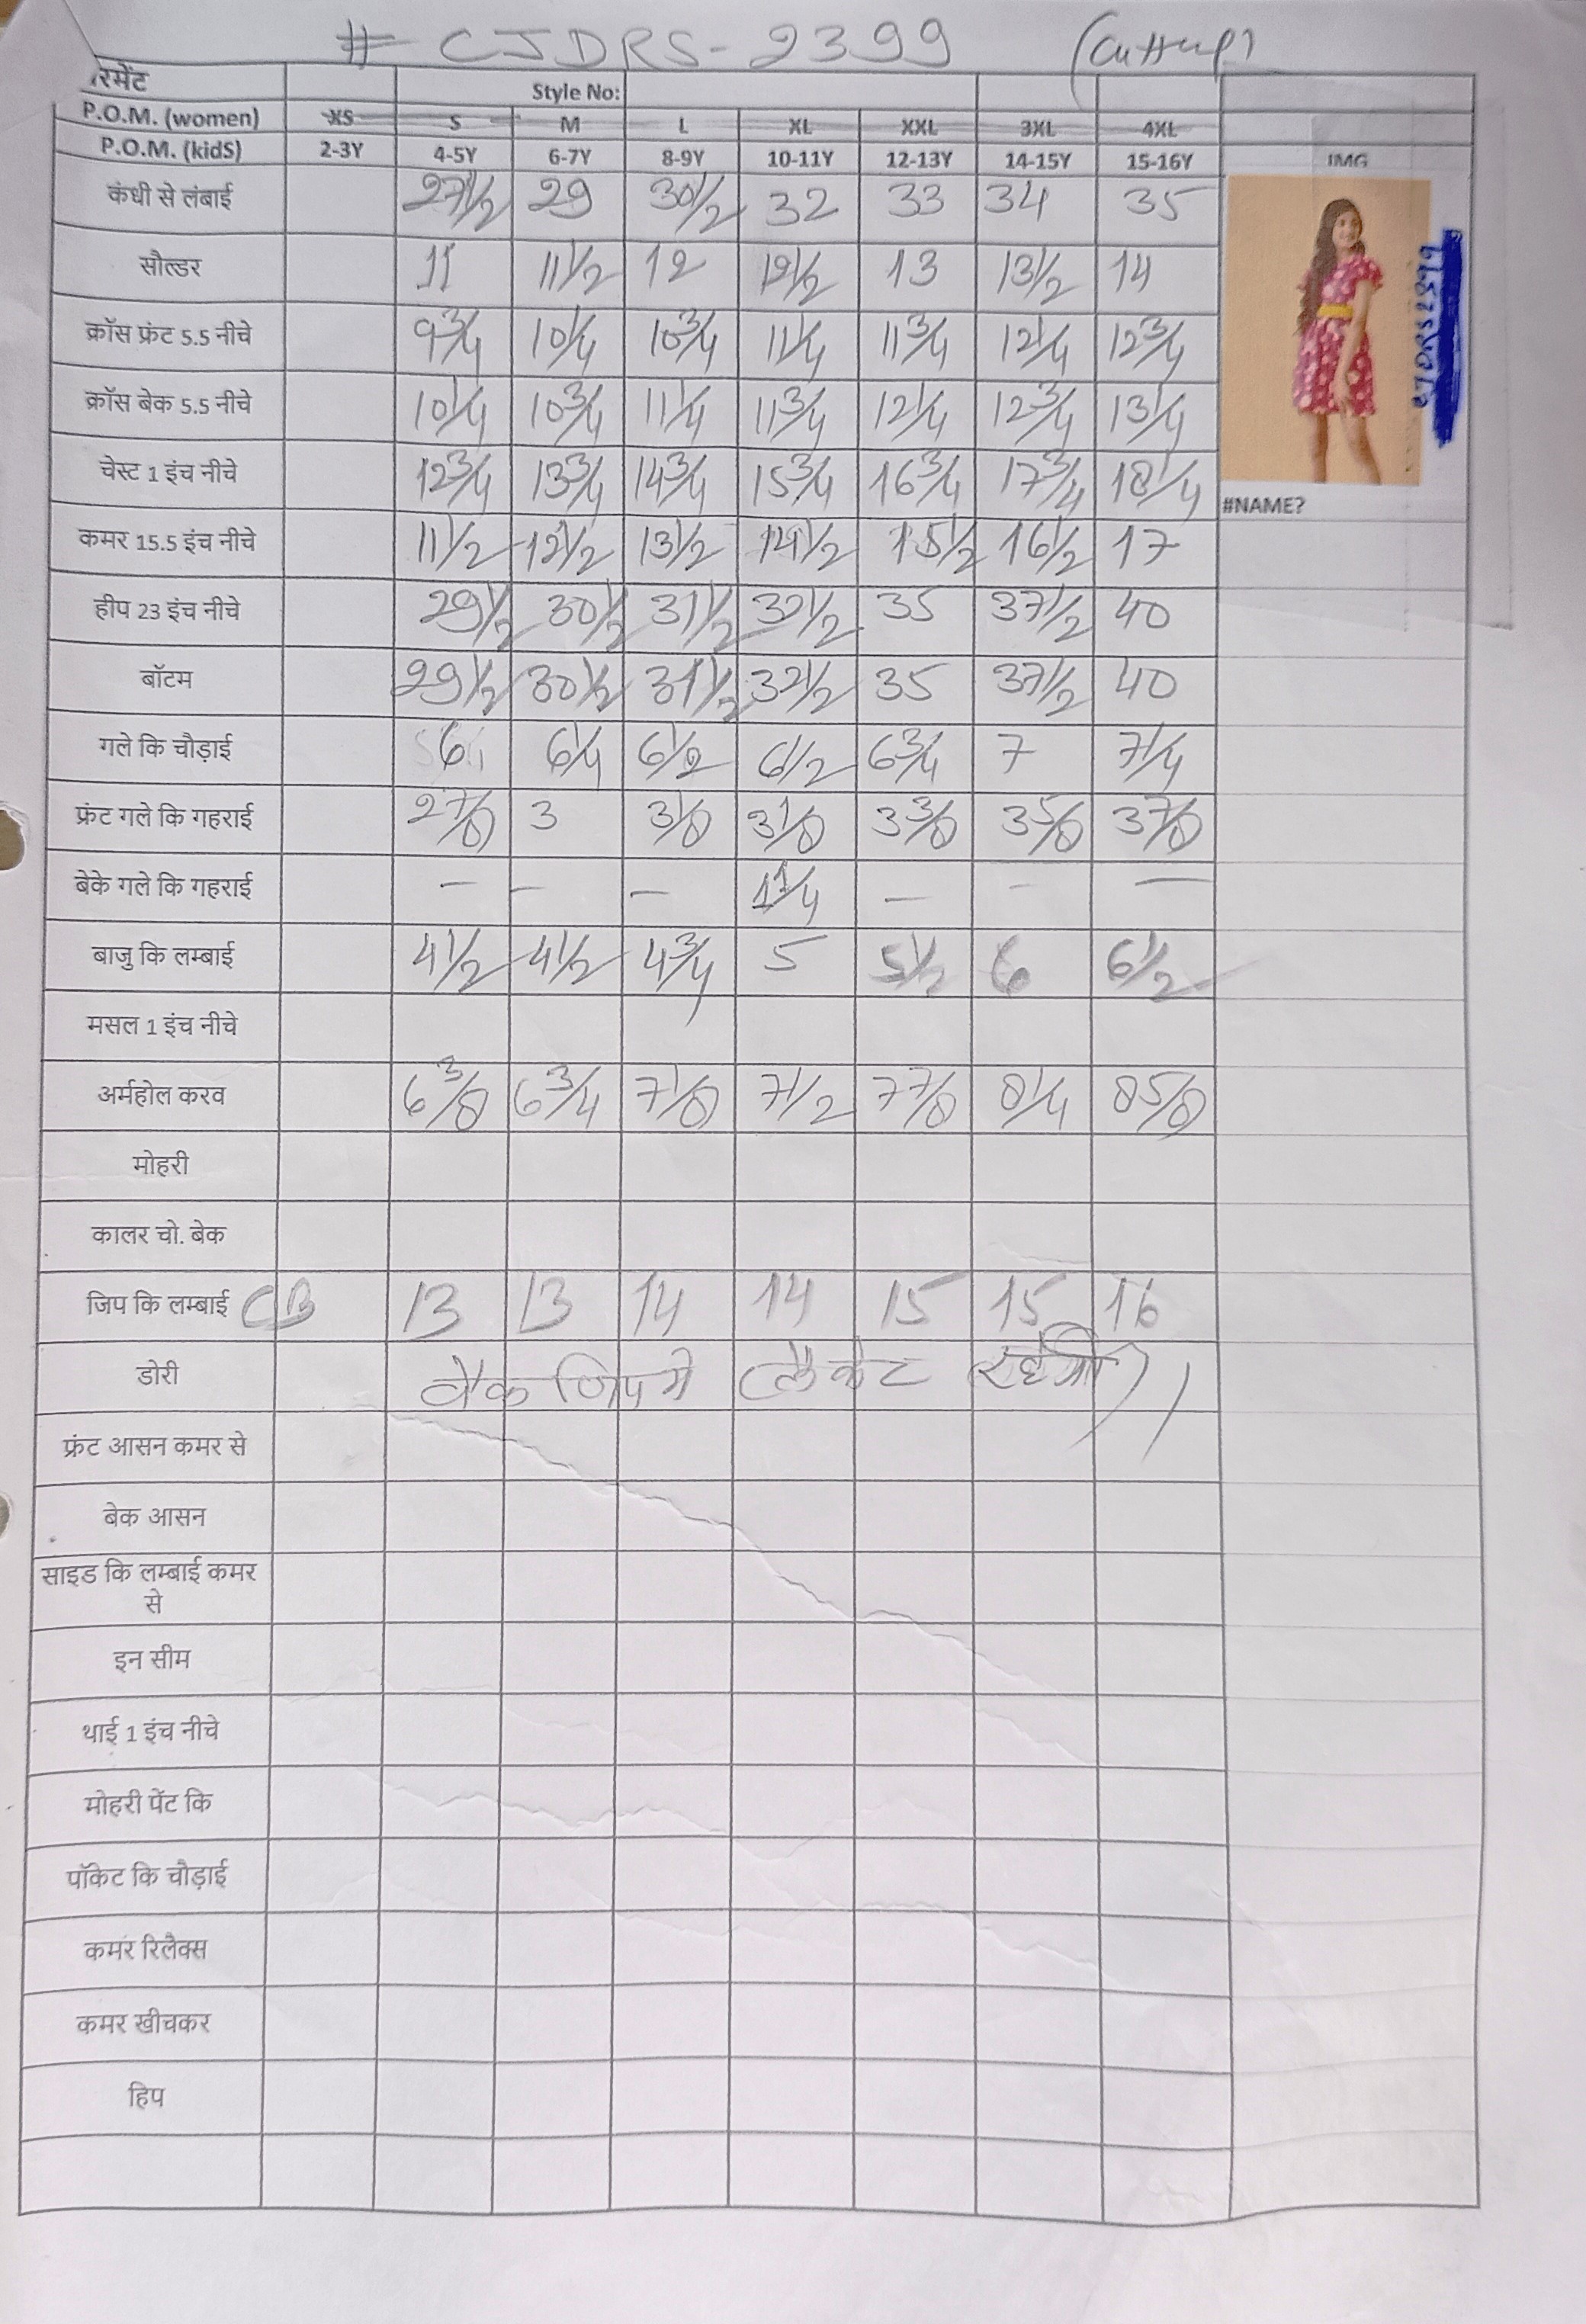 # CJDRS-2399
रमेंट Style No:
P.O.M. (women) XS S M L XL XXL 3XL 4XL
P.O.M. (kidS) 2-3Y 4-5Y 6-7Y 8-9Y 10-11Y 12-13Y 14-15Y 15-16Y IMG
कंधी से लंबाई 27 1/2 29 30 1/2 32 33 34 35
सौल्डर 11 11 1/2 12 12 1/2 13 13 1/2 14
क्रॉस फ्रंट 5.5 नीचे 9 3/4 10 1/4 10 3/4 11 1/4 11 3/4 12 1/4 12 3/4
क्रॉस बेक 5.5 नीचे 10 1/4 10 3/4 11 1/4 11 3/4 12 1/4 12 3/4 13 1/4
चेस्ट 1 इंच नीचे 12 3/4 13 3/4 14 3/4 15 3/4 16 3/4 17 3/4 18 1/4
#NAME?
कमर 15.5 इंच नीचे 11 1/2 12 1/2 13 1/2 14 1/2 15 1/2 16 1/2 17
हीप 23 इंच नीचे 29 1/2 30 1/2 31 1/2 32 1/2 35 37 1/2 40
बॉटम 29 1/2 30 1/2 31 1/2 32 1/2 35 37 1/2 40
गले कि चौड़ाई 6 6 1/4 6 1/2 6 1/2 6 3/4 7 7 1/4
फ्रंट गले कि गहराई 2 7/8 3 3 1/8 3 1/8 3 3/8 3 5/8 3 7/8
बेके गले कि गहराई — — — 1 1/4 — — —
बाजु कि लम्बाई 4 1/2 4 1/2 4 3/4 5 5 1/2 6 6 1/2
मसल 1 इंच नीचे
अर्महोल करव 6 3/8 6 3/4 7 1/8 7 1/2 7 7/8 8 1/4 8 5/8
मोहरी
कालर चो. बेक
जिप कि लम्बाई CB 13 13 14 14 15 15 16
डोरी बैक जिप मे
फ्रंट आसन कमर से
बेक आसन
साइड कि लम्बाई कमर
से
इन सीम
थाई 1 इंच नीचे
मोहरी पेंट कि
पॉकेट कि चौड़ाई
कमर रिलैक्स
कमर खीचकर
हिप